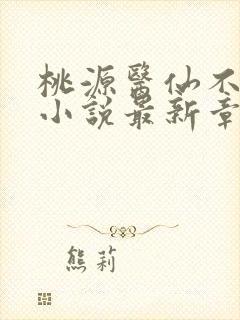 桃源醫仙不
小說最新章
熊莉